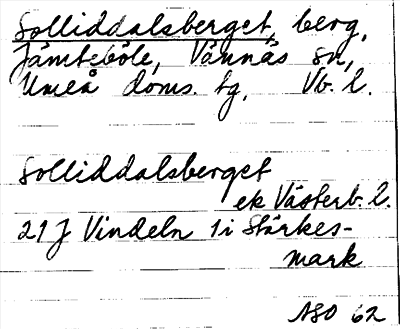 Solliddalsberget, berg,
Jämteböle, Vännäs sn,
Umeå doms. tg, Vb. l.
Solliddalsberget
ek Västerb. l.
21 J Vindeln 1 i Stärkes-
mark
ASO 62